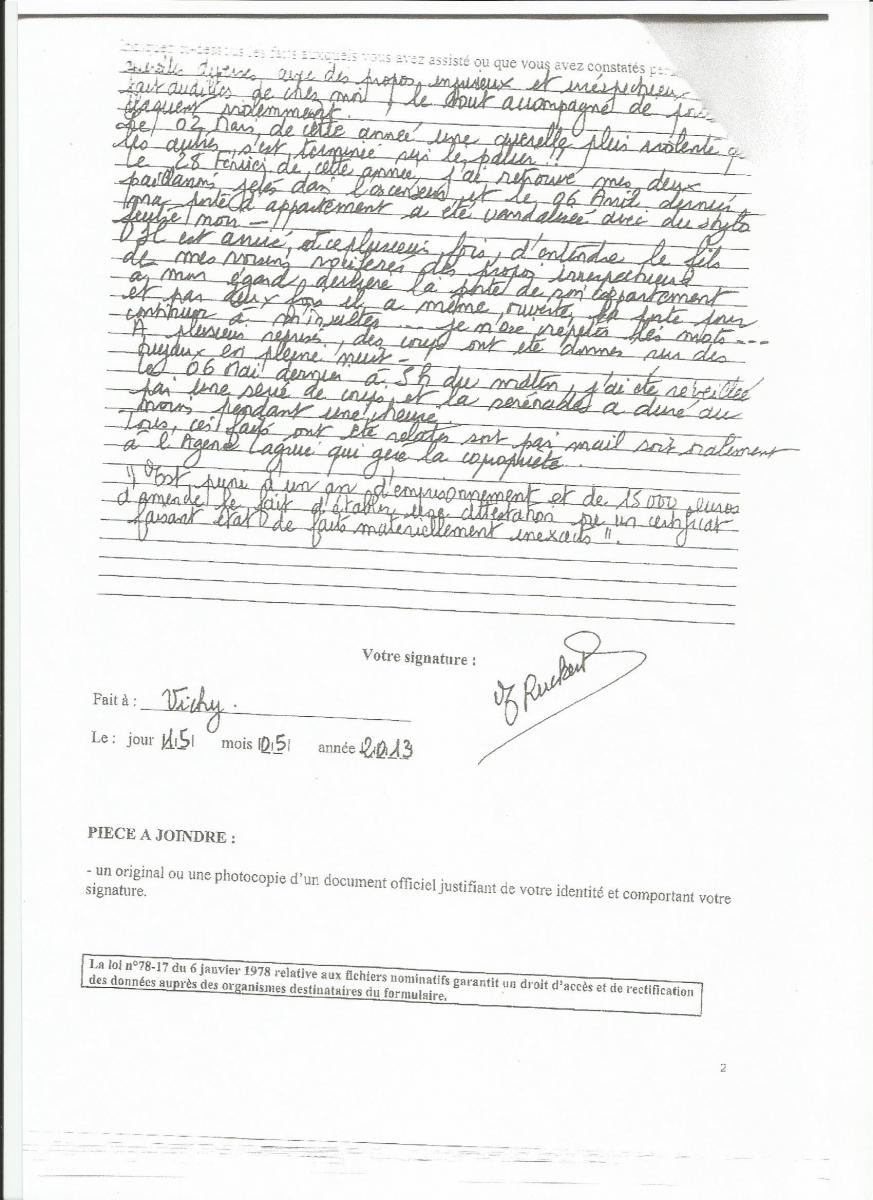 Indiquez ci-dessous les faits auxquels vous avez assisté ou que vous avez constatés
diverses, avec des propos injurieux et irrespectueux
fait audibles de chez moi, le tout accompagné de
claquent violemment.
Le 02 Mars, de cette année une querelle plus violente
les autres, s'est terminée sur le palier !!
Le 28 Février de cette année, j'ai retrouvé mes deux
paillassons jetés dans l'ascenseur, et le 06 Avril dernier
ma porte d'appartement a été vandalisée avec du stylo
feutre noir -
Il est arrivé, et ce plusieurs fois, d'entendre le fils
de mes voisins vociférer des propos irrespectueux
à mon égard derrière la porte de son appartement
et par deux fois il a même, ouverte, la porte pour
continuer à m'insulter --- je n'ose répéter les mots ---
A plusieurs reprises, des coups ont été donnés sur des
tuyaux en pleine nuit -
Le 06 Mai dernier à 5h du matin, j'ai été réveillée
par une série de coups et la sérénades a duré au
moins pendant une heure.
Tous, ces faits ont été relatés soit par mail soit oralement
à l'Agence Lagrue qui gère la copropriété.
"Est punie d'un an d'emprisonnement et de 15 000 euros
d'amende le fait d'établir une attestation ou un certificat
faisant état de faits matériellement inexacts".
Votre signature :
Ruckert
Fait à : Vichy.
Le : jour 15 mois 05 année 2013
PIECE A JOINDRE :
- un original ou une photocopie d'un document officiel justifiant de votre identité et comportant votre
signature.
La loi n°78-17 du 6 janvier 1978 relative aux fichiers nominatifs garantit un droit d'accès et de rectification
des données auprès des organismes destinataires du formulaire.
2